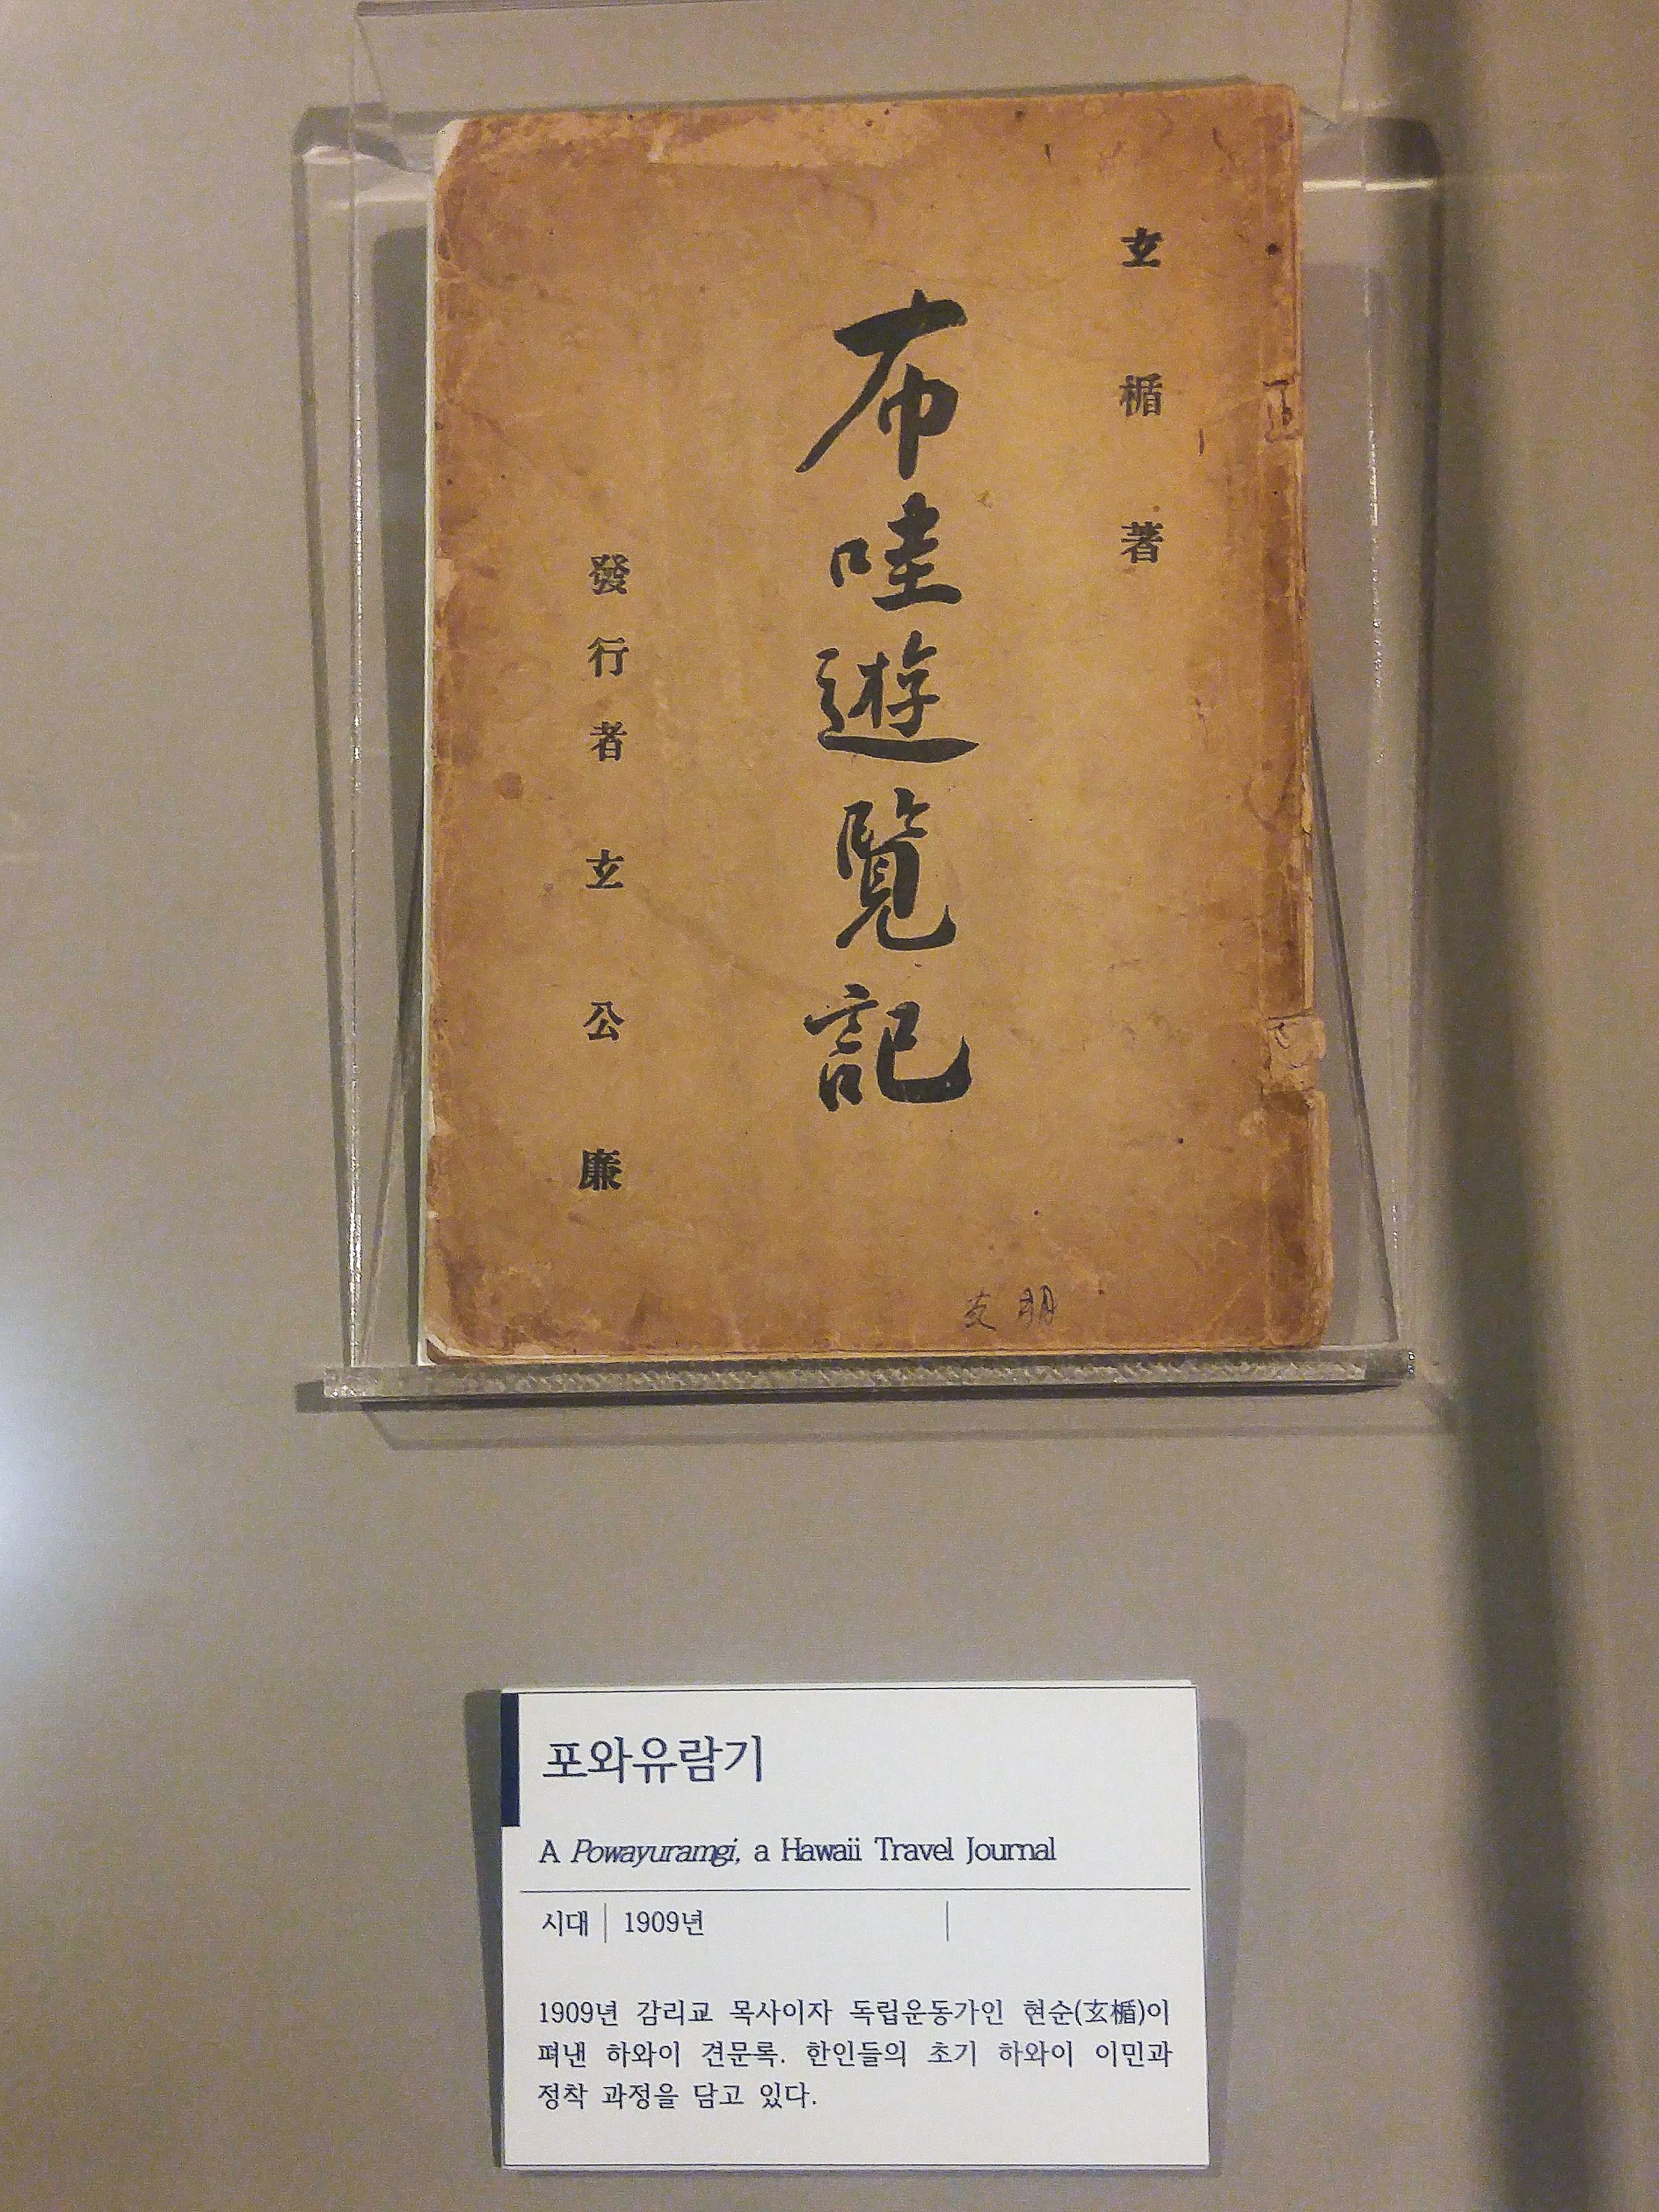 玄楯著
布哇遊覽記
發行者 玄公廉
포와유람기
A Powayuramgi, a Hawaii Travel Journal
시대 | 1909년
1909년 감리교 목사이자 독립운동가인 현순(玄楯)이
펴낸 하와이 견문록. 한인들의 초기 하와이 이민과
정착 과정을 담고 있다.